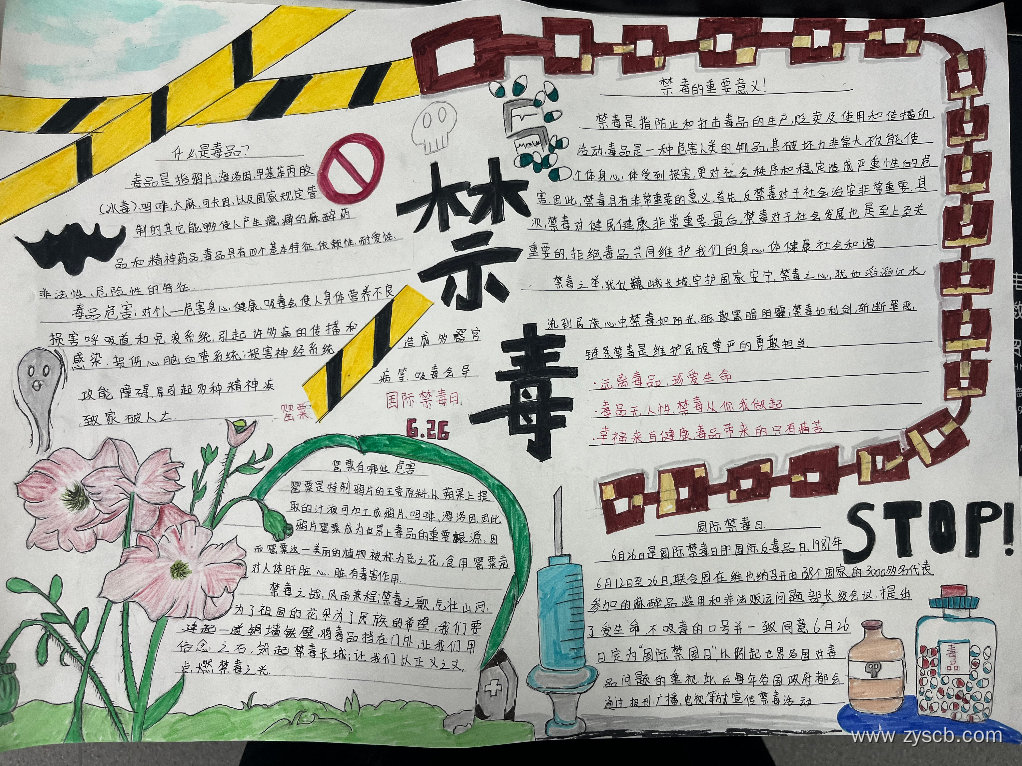 什么是毒品?
毒品是指鸦片、海洛因、甲基苯丙胺
(冰毒)、吗啡、大麻、可卡因,以及国家规定管
制的其它能够使人产生瘾、癖的麻醉药
品和精神药品。毒品具有四个基本特征:依赖性、耐受性、
非法性、危险性的特征
毒品危害:对个人一危害身心健康、吸毒会使人身体营养不良
损害呼吸道和免疫系统,引起许多病的传播和
感染,损伤心脑血管系统;损害神经系统 造成多器官
功能障碍,易引起多种精神 病等,吸毒会导
致家破人亡
罂粟
国际禁毒日
6.26
禁毒
罂粟有哪些危害
罂粟是特制鸦片的主要原料,从蒴果上提
取的汁液可加工成鸦片、吗啡、海洛因,因此
鸦片罂粟成为世界上毒品的重要根源,因
而罂粟这一美丽的植物被称为恶之花,食用罂粟壳
对人体肝脏、心脏有毒害作用
禁毒之战,风雨兼程,禁毒之歌,气壮山河,
为了祖国的花朵为了民族的希望,我们要
建起一道铜墙铁壁,将毒品挡在门外,让我们用
信念之石,筑起禁毒长城;让我们以正义之义,
点燃禁毒之光
禁毒的重要意义!
禁毒是指防止和打击毒品的生产、贩卖及使用和传播的
活动,毒品是一种危害人类的物品,其破坏力非常大,欣能使
个体身心体受到损害,更对社会秩序和稳定造成严重性的危
害,因此,禁毒具有非常重要的意义,首先,反禁毒对于社会治安非常重要,其
次,禁毒对健民健康非常重要,最后,禁毒对于社会发展也是至关
重要的,拒绝毒品共同维护我们的身心体健康社会和谐
禁毒之举,犹化巍峨长城守护国家安宁,禁毒之心,犹如滔滔江水,
流到民族心中禁毒如阳光,驱散黑暗阴霾,禁毒如利剑,斩断罪恶
链员禁毒是维护民族尊严的勇敢担当
·远离毒品,珍爱生命
·毒品无人性,禁毒从你我做起
·幸福来自健康,毒品带来的只有痛苦
STOP!
国际禁毒日
6月26日是国际禁毒日即国际反毒品日,1987年
6月12日至26日,联合国在维也纳召开由138个国家的3000多名代表
参加的麻醉品滥用和非法贩运问题部长级会议,提出
了爱生命 不吸毒的口号并一致同意6月26
日定为“国际禁毒日”以引起世界各国对毒
品问题的重视,此后每年各国政府都会
通过报刊广播、电视等方式宣传禁毒活动
毒品
www.zyscb.com